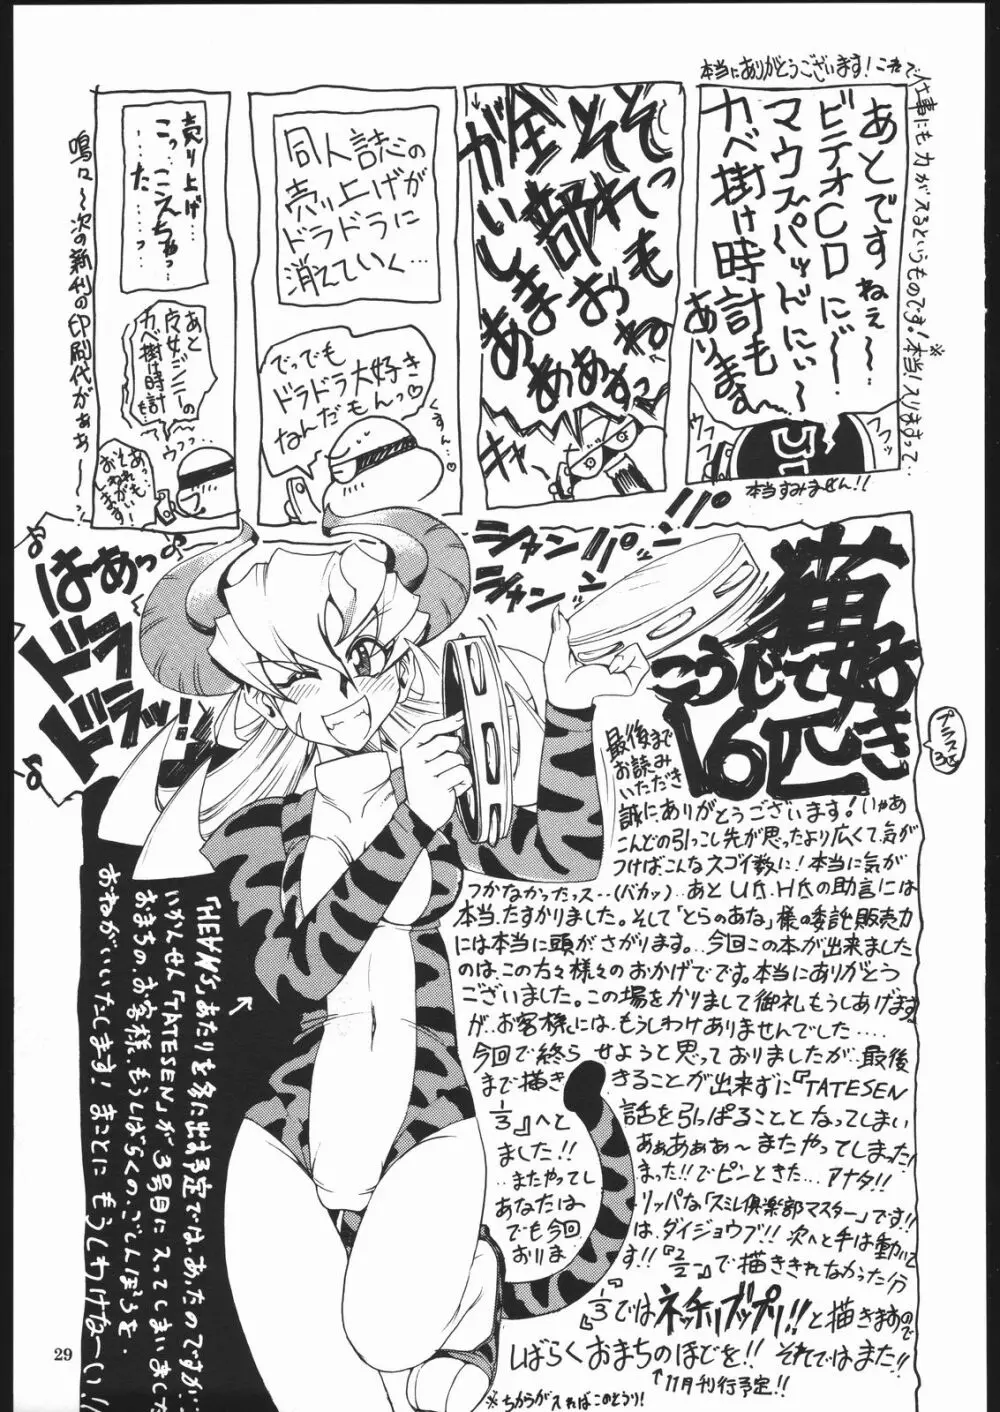 本当にありがとうございます！これで
仕事にも力が入るというものです！※本当に入りますって…
あとですねぇ〜…
ビデオCDにぃ〜
マウスパッドにぃ〜
カベ掛け時計も
あります
ウフフ
ウフフ
本当すみません!!
そそ
れっ
全部
おもね
がいしまあ
ああぁっ
キャー
同人誌の
売り上げが
ドラドラに
消えていく…
でっでも
ドラドラ大好き
なんだもんっ♡
くすん…♡
売り上げ…
こっ…こえちゃっ…
……た………っ
あと
皮女ジニーの
カベ掛け時計
も…
ウウッ…
あっ…も
それもおねがい！
します
鳴々〜次の新刊の印刷代がぁぁ〜〜っ!
はあっ
ドラドラッ!!
シャンパンパン
シャンシャン
猫好き
こうじで
16匹
プラス3匹
最後まで
お読み
いただき
誠にありがとうございます！いやぁ
こんどの引っこし先が思ったより広くて、気が
つけばこんなスゴイ数に！本当に気が
つかなかったっス…(バカッ)…あとU.H.の助言には
本当、たすかりました。そして「とらのあな」様の委託販売力
には本当に頭がさがります。…今回この本が出来ました
のは、この方々様々のおかげでです。本当にありがとう
ございました。この場をかりまして御礼もうしあげます
が、お客様には、もうしわけありませんでした……
今回で終らせようと思っておりましたが、最後
まで描ききることが出来ずに『TATESEN
1/3』へと話を引っぱることとなってしまい
ました!!ああぁあぁぁ〜またやってしまった!
…またやってしまった!!でピンときた…アナタ!!
あなたはリッパな「スミレ倶楽部マスター」です!!
でも今回は、ダイジョウブ!!次へと手は動いて
おります!!『2/2』で描ききれなかった分
『1/3』ではネッチリブップリ!!と描きますので
しばらくおまちのほどを!!それではまた!!
↑11月刊行予定!!
※ちからが入ればこのとうり!
「HEAWS」あたりを冬に出す予定では、あったのですが…
いかんせん「TATESEN」が3号目に入ってしまいました
おまちの、お客様、もうしばらくの、ごしんぼうを、
おねがいいたします！まことにもうしわけな〜い!!
29